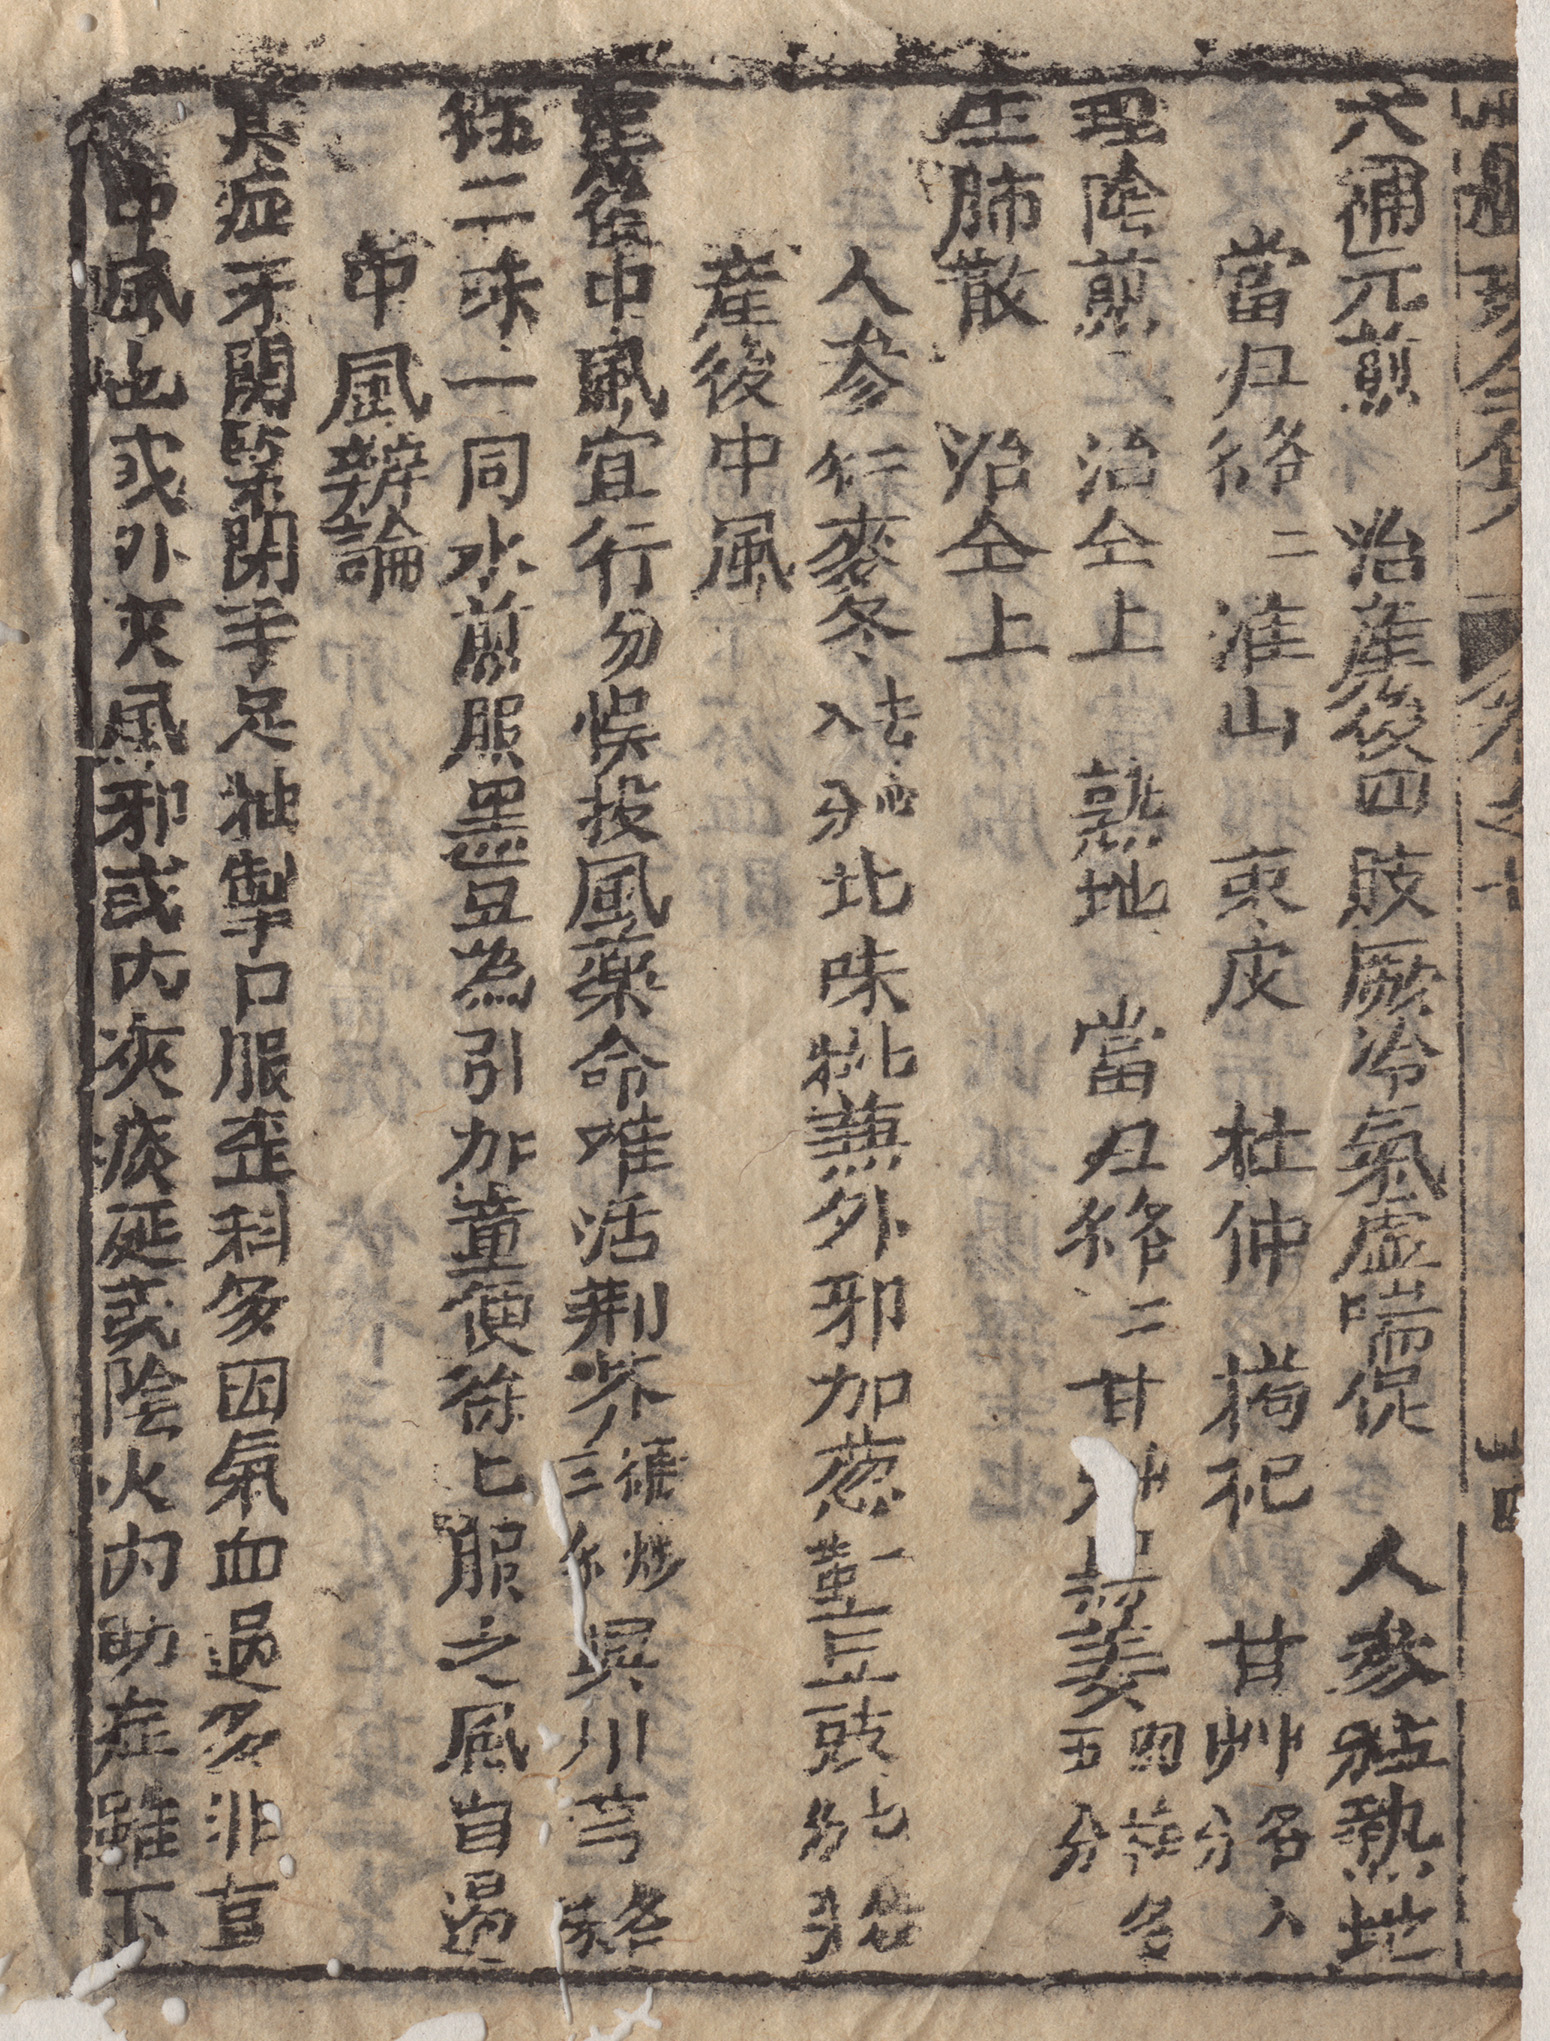 大補元煎　治產後四肢厥冷氣虛喘促　人參 熟地
當归各二 淮山 萸皮 杜仲 枸杞 甘艸各八分
理陰煎　治仝上　熟地 當归各二 甘 姜 各五分
生肺散　治仝上
人參 麥冬去心八分 北味 挑兼外邪加葱一莖豆豉七分
產後中風
中風宜行 悞投風藥命难活荆芥 炒三 川芎各
二味一同水煎服黑豆為引加童便徐匕服之風自遏
中風辨論
其症牙關緊閉手足抽掣口眼歪斜多因氣血過多非直
中風也或外夾風邪或內夾痰延或陰火內助症雖下